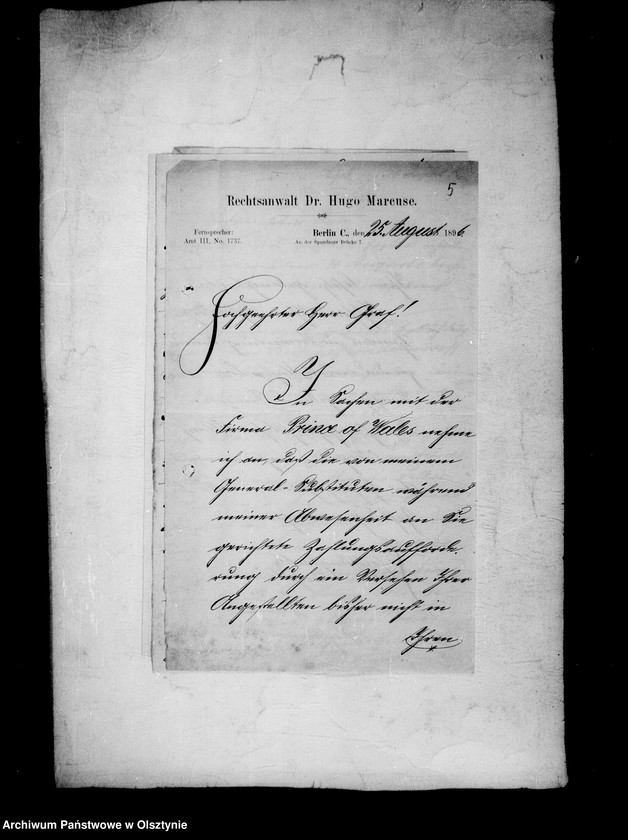 5
Rechtsanwalt Dr. Hugo Marcuse.
Fernsprecher:
Amt III, No. 1737.
Berlin C., den 25. August 1896
An der Spandauer Brücke 7.
Hochgeehrter Herr Graf!
In Sachen mit der
Firma Prince of Wales nehme
ich an, daß die von meinem
General-Substituten während
meiner Abwesenheit an Sie
gerichtete Zahlungsaufforde-
rung durch ein Versehen Ihrer
Angestellten bisher nicht in
Ihren
Archiwum Państwowe w Olsztynie